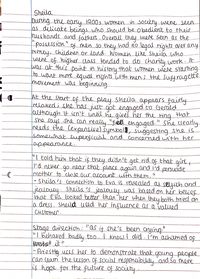 Sheila
During the early 1900s women in society were seen
as delicate beings who should be obedient to their
husbands and father. Overall they were seen as the
"possession" of men so they had no legal rights over any
money, children or land. Women like Sheila who
were of higher class tended to do charity work. It
was at this point in history that women were starting
to want more equal rights with men; the suffragette
movement was beginning.
At the start of the play Sheila appears fairly
relaxed - she has just got engaged to Gerald
although it isn't until he gives her the ring that
she says she can really "feel engaged". She clearly
needs the (expensive) symbol, suggesting she is
somewhat superficial and concerned with her
appearance.
"I told him that if they didn't get rid of that girl,
I'd never go near that place again and I'd persuade
mother to close our account with them."
- Sheila's connection to Eva is revealed as selfish and
jealousy. Sheila's jealousy was based on her belief
that Eva looked better than her when they both tried on
a dress. Sheila used her influence as a valued
customer.
Stage direction: "as if she's been crying"
"I behaved badly too. I know I did. I'm ashamed of
it"
- Priestly uses her to demonstrate that young people
can learn the lesson of social responsibility and so there
is hope for the future of society.